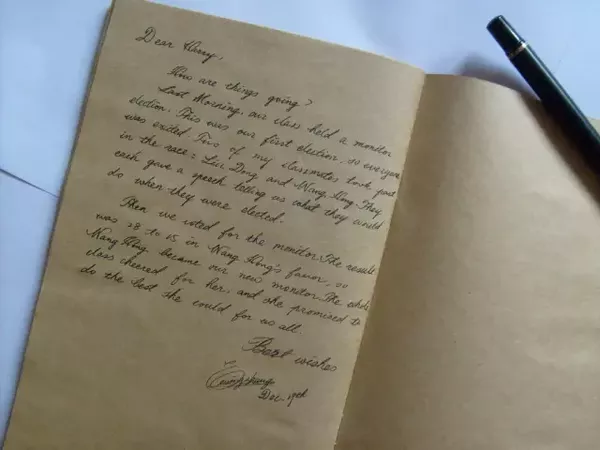 Dear Henry,
How are things going?
Last Morning, our class held a monitor
election. This was our first election, so everyone
was exited. Two of my classmates took part
in the race: Liu Ding and Wang Hong. They
each gave a speech telling us what they would
do when they were elected.
Then we voted for the monitor. The result
was 28 to 15 in Wang Hong's favor, so
Wang Hong became our new monitor. The whole
class cheered for her, and she promised to
do the best she could for us all.
Best wishes
Dec.